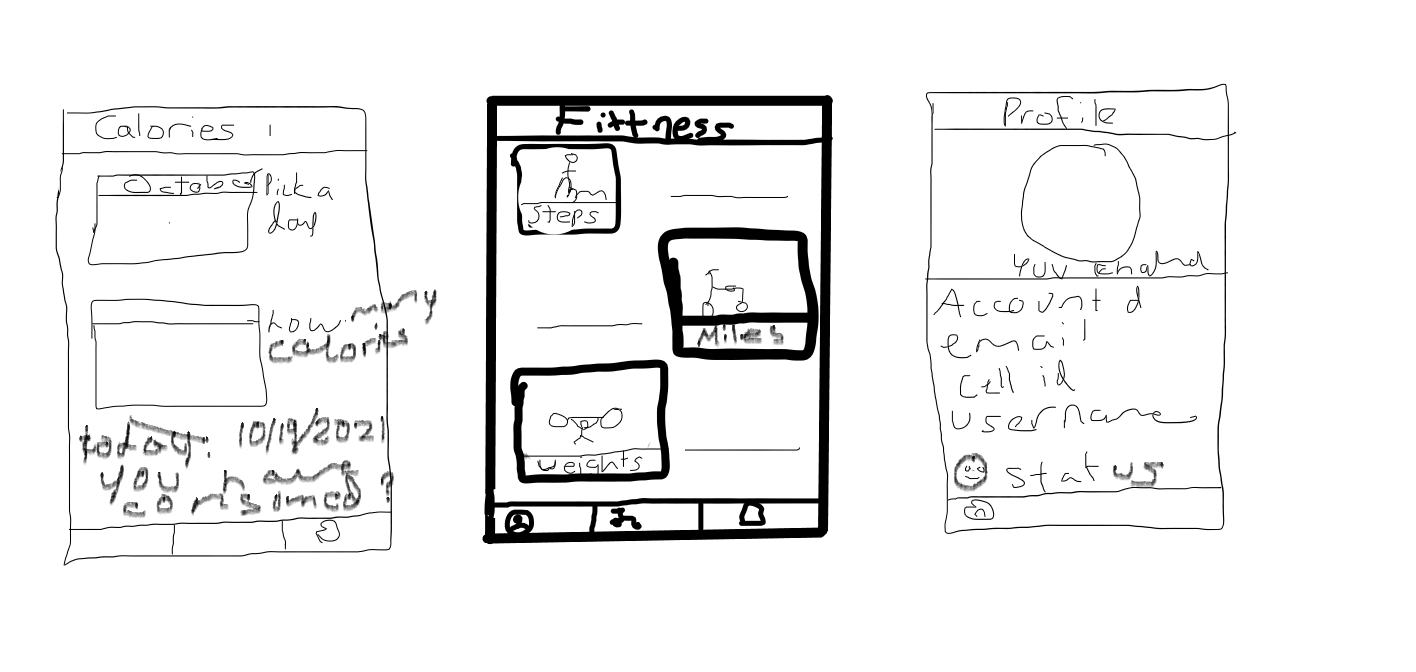 Calories
October
Pick a
day
how many
calories
today: 10/19/2021
you have
consumed?
Fittness
Steps
Miles
Weights
Profile
Yuv
Account d
email
Cell id
username
status